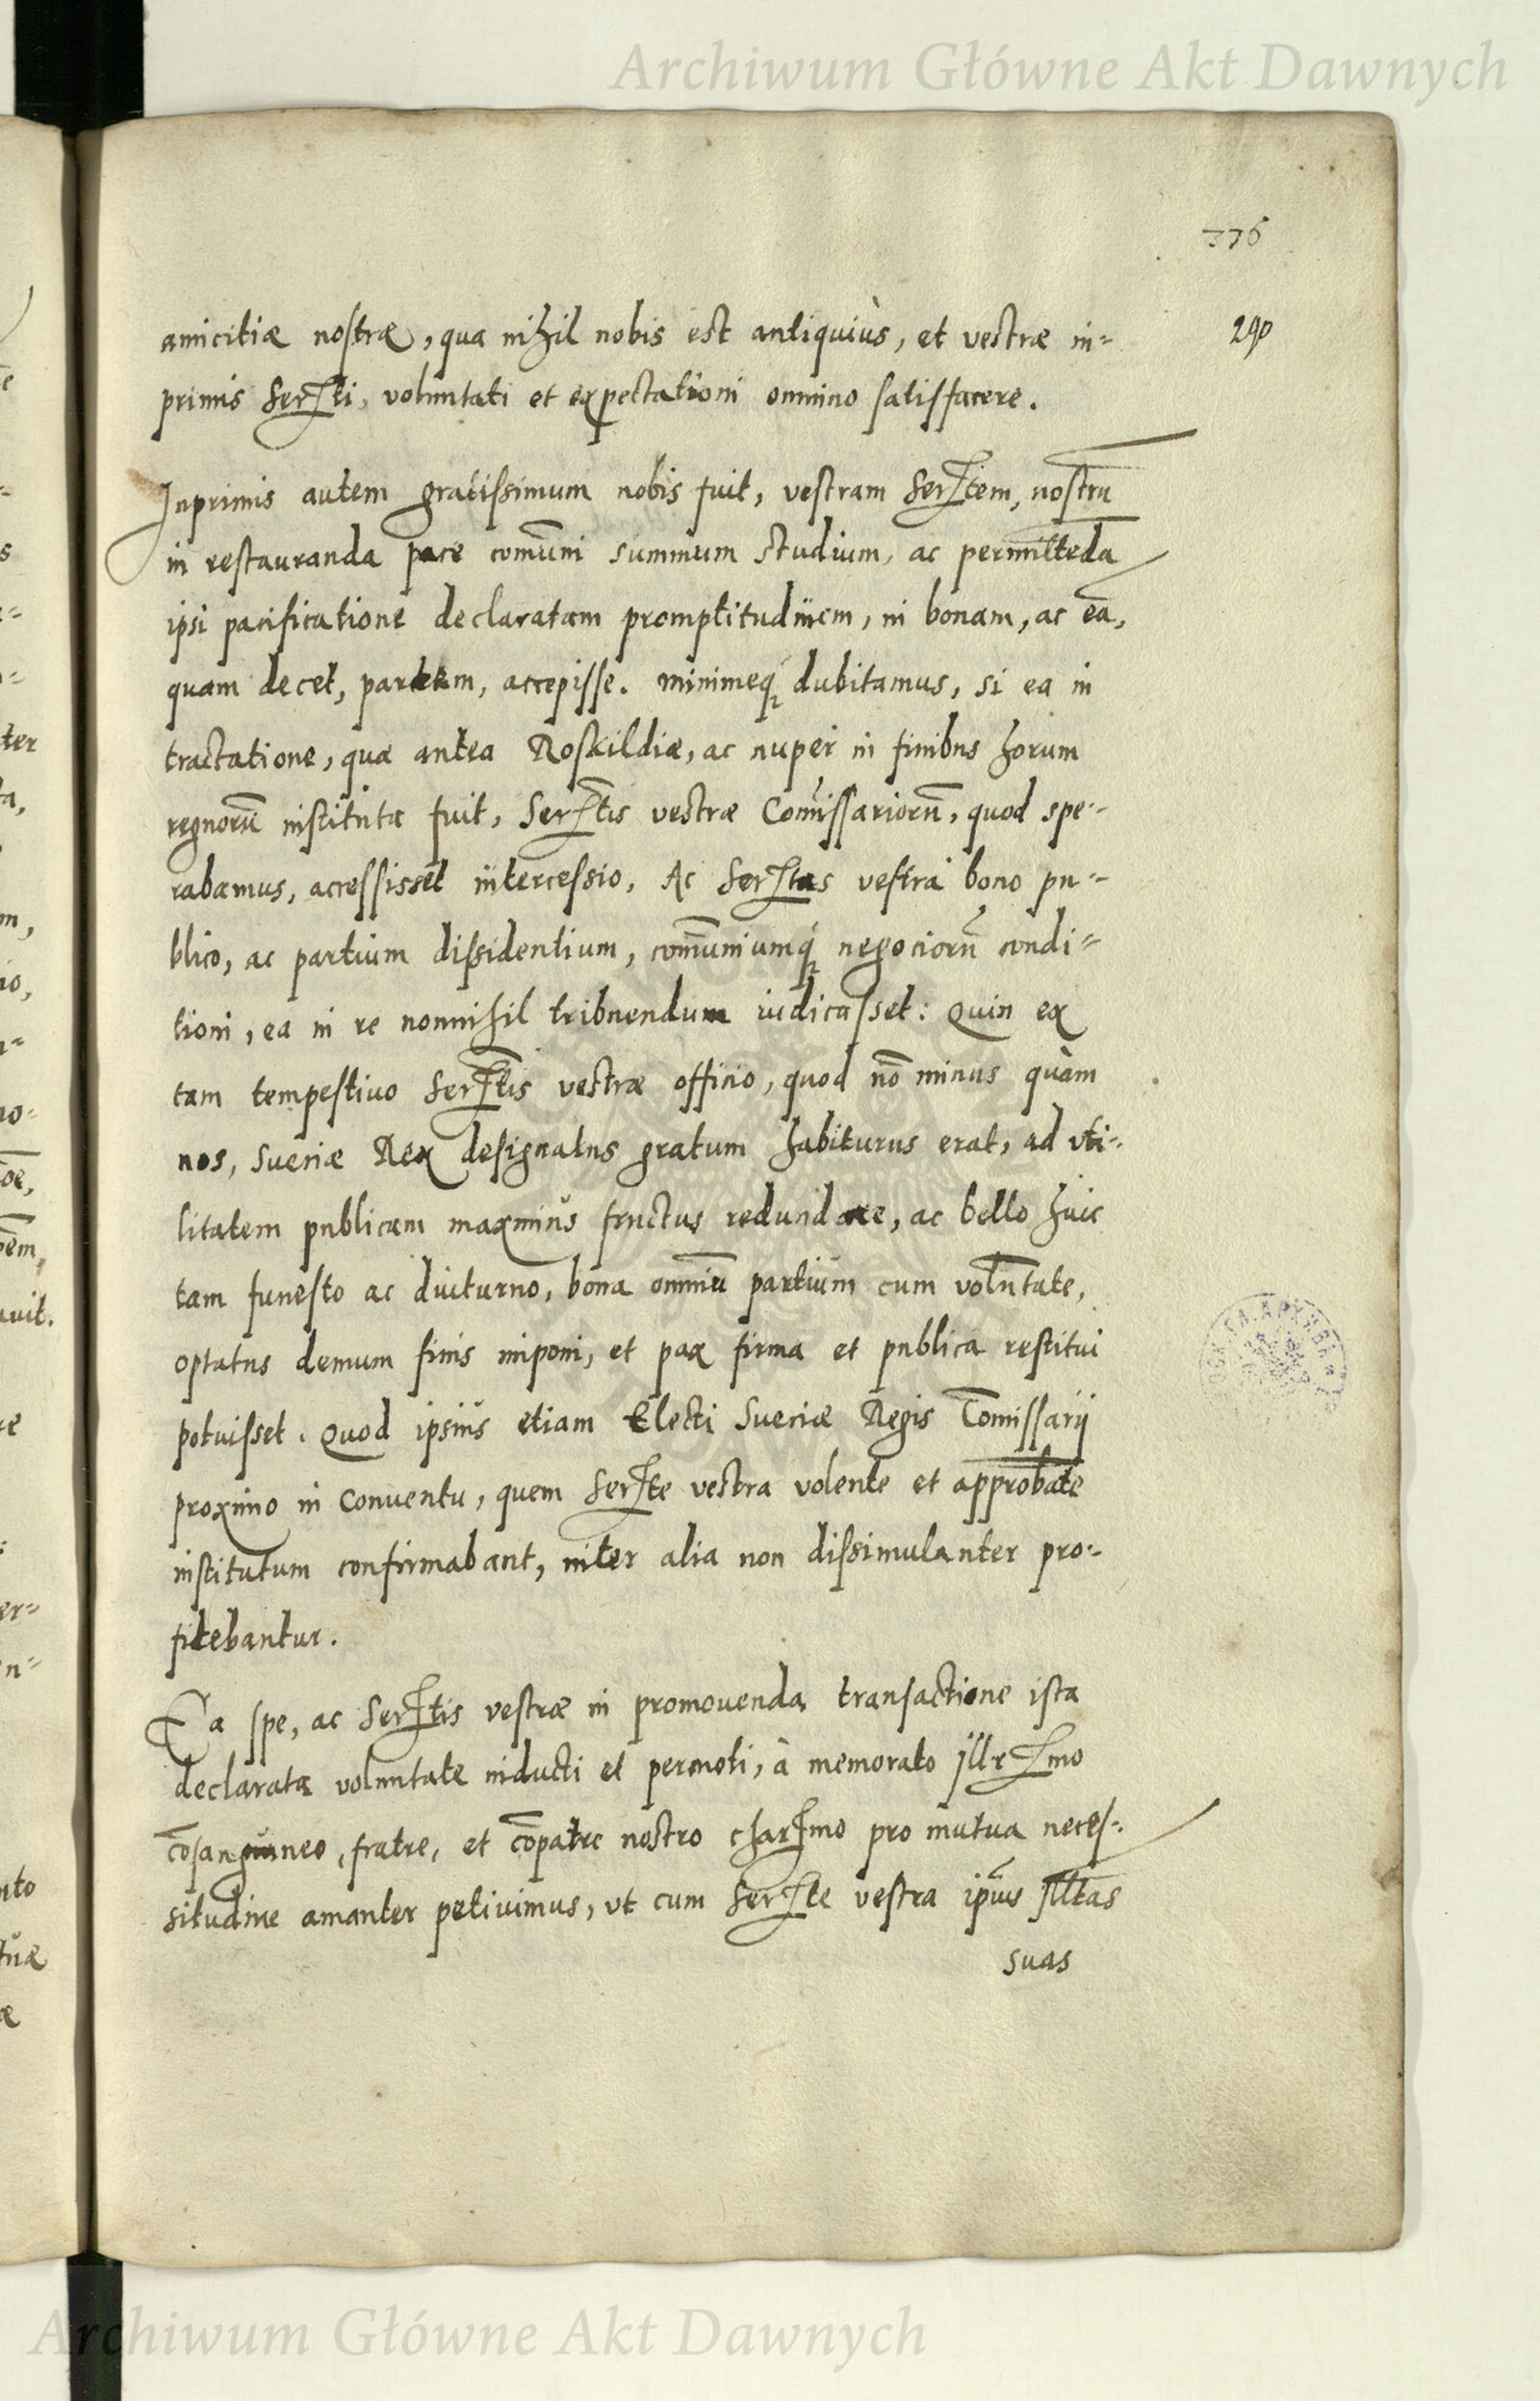 Archiwum Główne Akt Dawnych
776
290
amicitiæ nostræ, qua nihil nobis est antiquiùs, et vestræ in-
primis Serᵗⁱ, voluntati et expectationi omnino satisfacere.
Inprimis autem gratissimum nobis fuit, vestram Serᵗᵉᵐ, nostrū
in restauranda pace com̄uni summum studium, ac permitteđa
ipsi pacificatione declaratam promptitudinem, in bonam, ac eā,
quam decet, partem, accepisse. minimeq́ dubitamus, si ea in
tractatione, quæ antea Roskildiæ, ac nuper in finibus horum
regnorū instituta fuit, Serᵗⁱˢ vestræ Com̄issariorū, quod spe-
rabamus, accessisset intercessio, Ac Serᵗᵃˢ vestra bono pu-
blico, ac partium dissidentium, com̄uniumq́ negociorū condi-
tioni, ea in re nonnihil tribuendum iudicasset: Quin ex
tam tempestiuo Serᵗⁱˢ vestræ officio, quod nō minus quàm
nos, Sueciæ Rex designatus gratum habiturus erat, ad vti-
litatem publicam maximus fructus redundare, ac bello huic
tam funesto ac diuturno, bona omniū partium cum volūntate,
optatus demum finis imponi, et pax firma et publica restitui
potuisset. Quod ipsius etiam Electi Sueciæ Regis Com̄issarij
proximo in Conuentu, quem Serᵗᵉ vestra volente et approbāte
institutum confirmabant, inter alia non dissimulanter pro-
fitebantur.
Ea spe, ac Serᵗⁱˢ vestræ in promouenda transactione ista
declarata voluntate inducti et permoti, à memorato Jllrᵐᵒ
cōsanguineo, fratre, et cōpatre nostro charᵐᵒ pro mutua neces-
situdine amanter petiuimus, vt cum Serᵗᵉ vestra ip̄ius Jllᵗᵃˢ
suas
Archiwum Główne Akt Dawnych